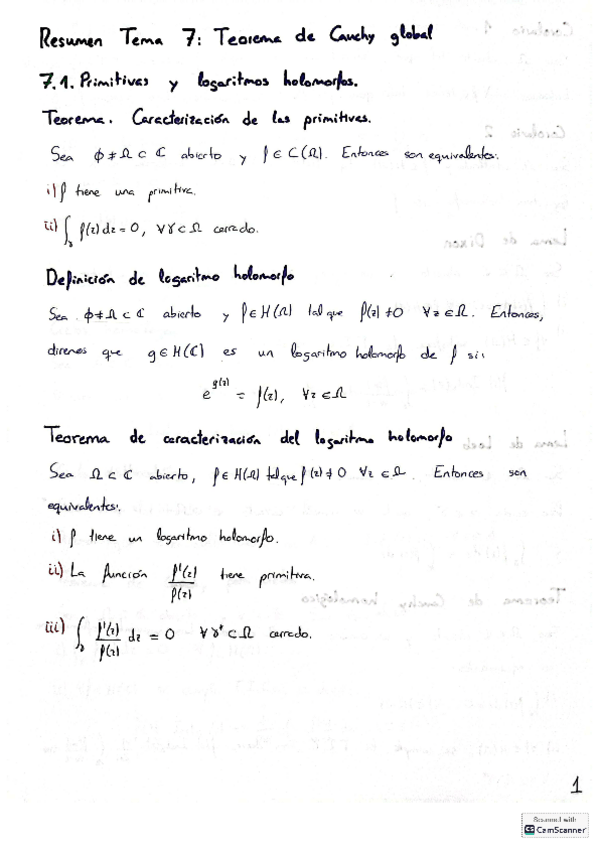 Resumen Tema 7: Teorema de Cauchy global
7.1. Primitivas y logaritmos holomorfos.
Teorema. Caracterización de las primitivas.
Sea ϕ ≠ Ω ⊂ ℂ abierto y f ∈ C(Ω). Entonces son equivalentes:
i) f tiene una primitiva.
ii) ∫_γ f(z) dz = 0, ∀γ ⊂ Ω cerrado.
Definición de logaritmo holomorfo
Sea ϕ ≠ Ω ⊂ ℂ abierto y f ∈ H(Ω) tal que f(z) ≠ 0 ∀z ∈ Ω. Entonces,
diremos que g ∈ H(ℂ) es un logaritmo holomorfo de f si:
e^{g(z)} = f(z), ∀z ∈ Ω
Teorema de caracterización del logaritmo holomorfo
Sea Ω ⊂ ℂ abierto, f ∈ H(Ω) tal que f(z) ≠ 0 ∀z ∈ Ω. Entonces son
equivalentes:
i) f tiene un logaritmo holomorfo.
ii) La función f'(z)/f(z) tiene primitiva.
iii) ∫_γ f'(z)/f(z) dz = 0 ∀γ* ⊂ Ω cerrado.
1
Scanned with
CS CamScanner